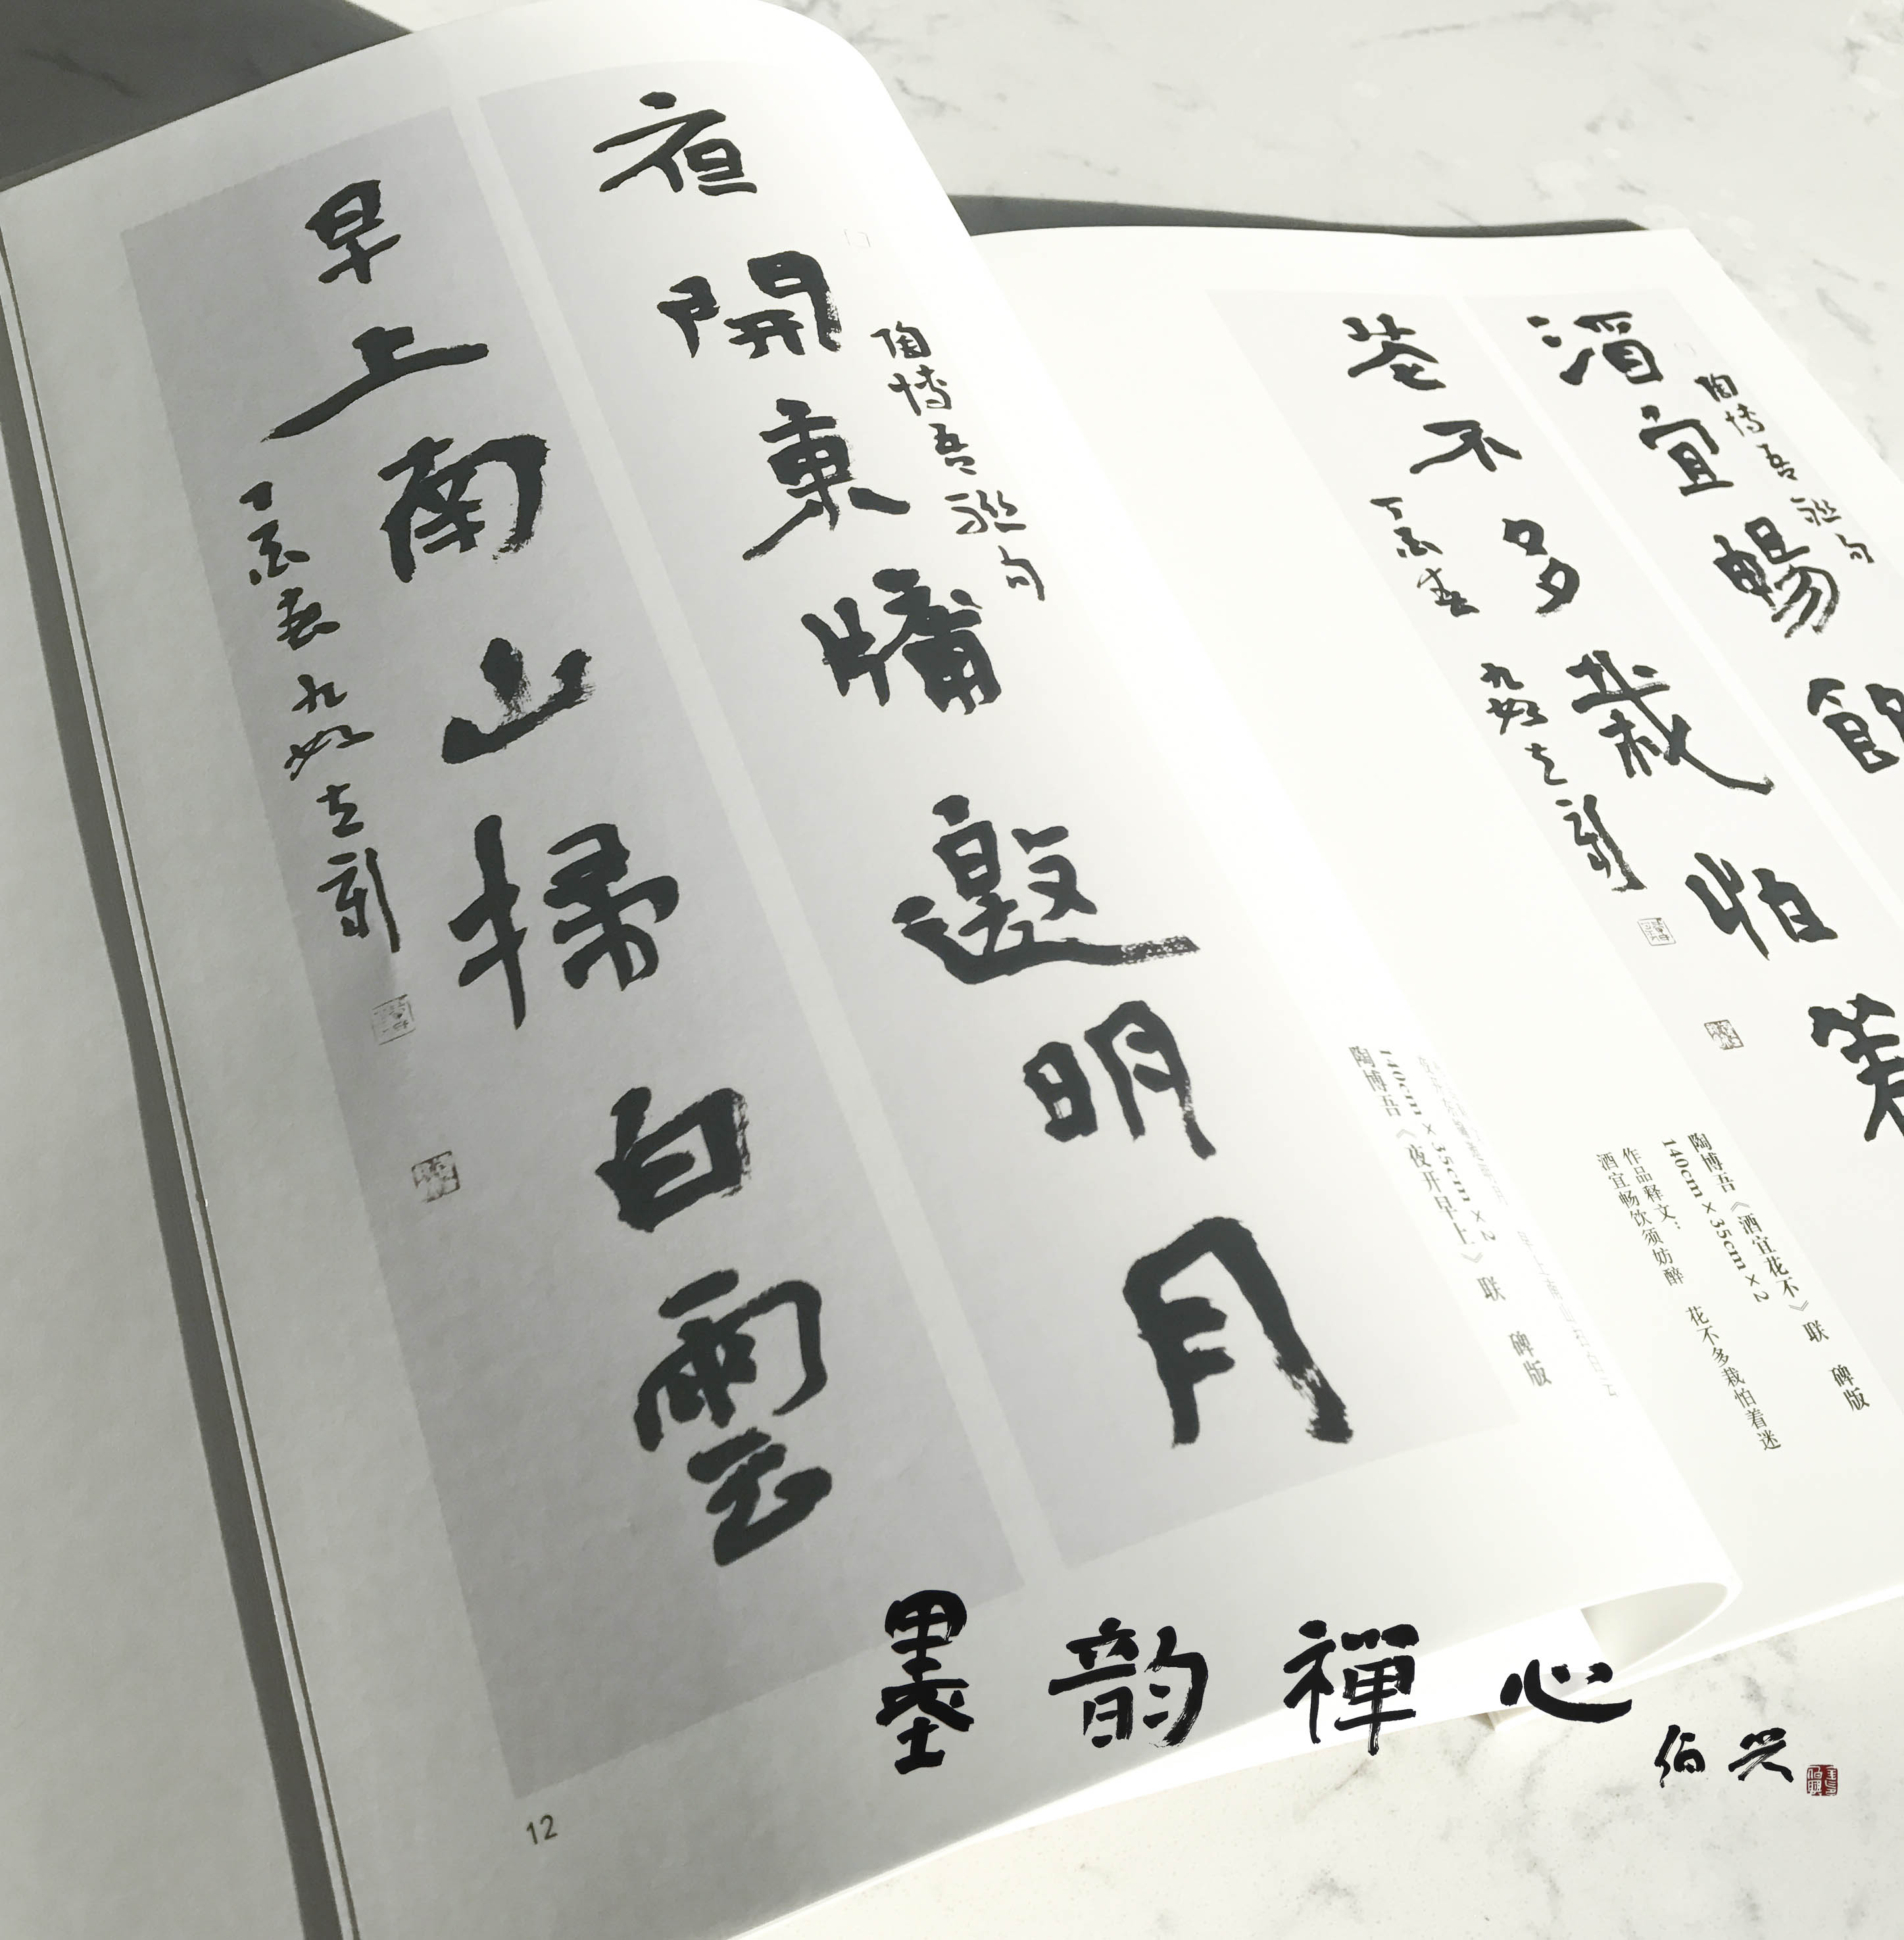 陶博吾聯句
夜開東牖邀明月
早上南山掃白雲
丁 春九如
12
陶博吾《夜开早上》联 碑版
140cm×35cm×2
陶博吾聯句
酒宜暢飲
花不多栽怕着
丁 春九如
陶博吾《酒宜花不》联 碑版
140cm×35cm×2
作品释文：
酒宜畅饮须妨醉 花不多栽怕着迷
墨韵禪心
伯兴